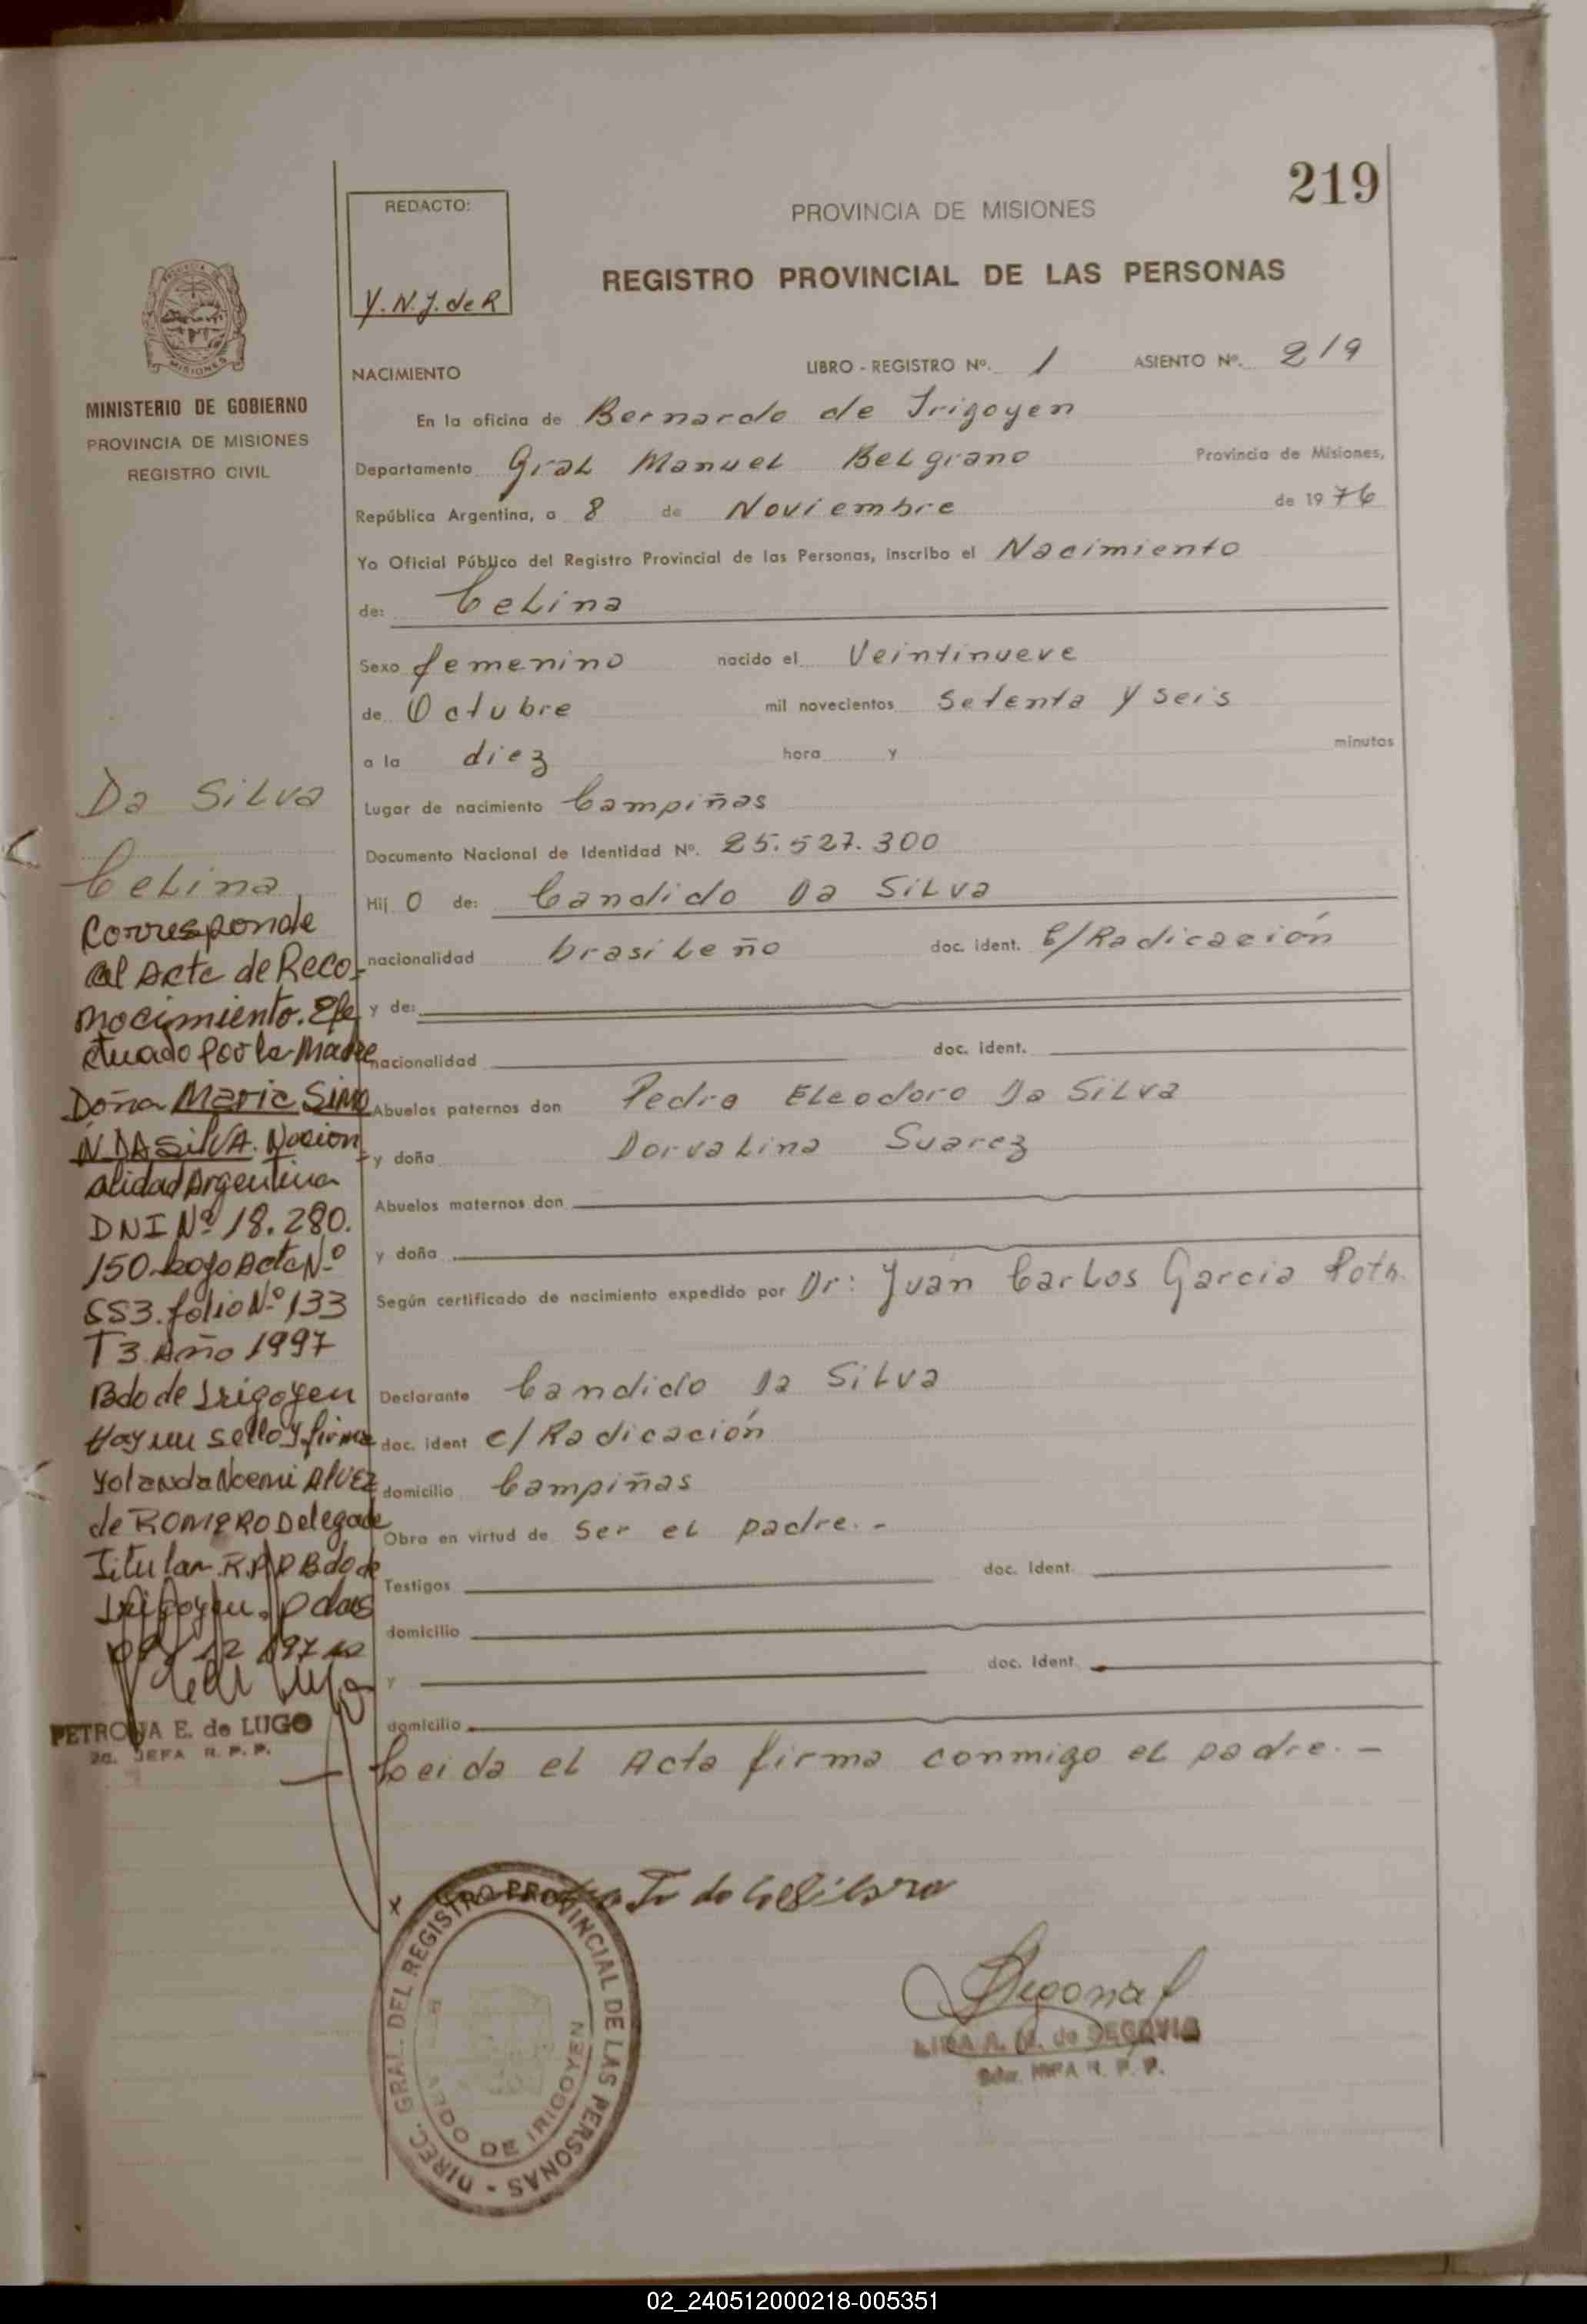 219
REDACTO:
Y.N.J. de R
PROVINCIA DE MISIONES
REGISTRO PROVINCIAL DE LAS PERSONAS
MINISTERIO DE GOBIERNO
PROVINCIA DE MISIONES
REGISTRO CIVIL
NACIMIENTO LIBRO - REGISTRO Nº. 1 ASIENTO Nº. 219
En la oficina de Bernardo de Irigoyen
Departamento Gral Manuel Belgrano Provincia de Misiones,
República Argentina, a 8 de Noviembre de 1976
Yo Oficial Público del Registro Provincial de las Personas, inscribo el Nacimiento
de: Celina
Sexo femenino nacido el Veintinueve
de Octubre mil novecientos Setenta y seis
a la diez hora y minutos
Lugar de nacimiento Campiñas
Documento Nacional de Identidad Nº. 25.527.300
Hij o de: Candido Da Silva
nacionalidad brasileño doc. ident. C/Radicación
y de:
nacionalidad doc. ident.
Abuelos paternos don Pedro Eleodoro Da Silva
y doña Dorvalina Suarez
Abuelos maternos don
y doña
Según certificado de nacimiento expedido por Dr: Juan Carlos Garcia Poth.
Declarante Candido Da Silva
doc. ident c/Radicación
domicilio Campiñas
Obra en virtud de ser el padre.-
Testigos doc. Ident.
domicilio
y doc. Ident.
domicilio
Leida el Acta firma conmigo el padre.-
Da Silva
Celina
Corresponde
al Acta de Reco-
nocimiento. Efe
ctuado por la Madre
Doña Maria SIMO
N DA SilVA. Nacion
alidad Argentina
DNI Nº 18.280.
150 bajo Acta Nº
553. folio Nº 133
T 3. Año 1997
Bdo de Irigoyen
Hay un sello y firma
Yolanda Noemi Alvez
de ROMERO Delegada
Titular R.P.P Bdo de
Irigoyen. Pdas
09/12/97
PETRONA E. de LUGO
2a. JEFA R. P. P.
DIREC. GRAL. DEL REGISTRO PROVINCIAL DE LAS PERSONAS -
BERNARDO DE IRIGOYEN
LIDA A. M. de SEGOVIA
JEFA R. P. P.
02_240512000218-005351